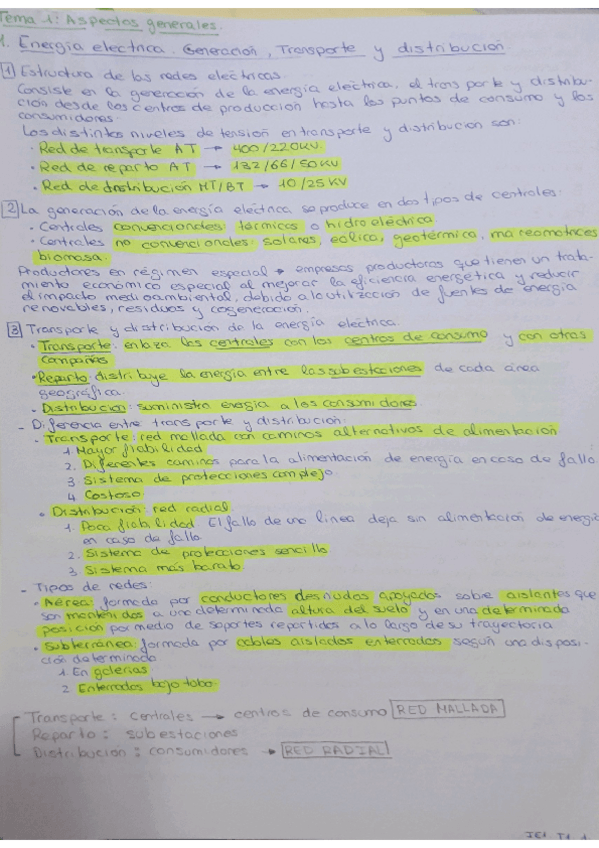 Tema 1: Aspectos generales.
1. Energía electrica. Generación, Transporte y distribución
1 Estructura de las redes electricas.
Consiste en la generación de la energía electrica, el transporte y distribu-
ción desde los centros de producción hasta los puntos de consumo y los
consumidores.
Los distintos niveles de tensión en transporte y distribución son:
· Red de transporte AT → 400/220KV.
· Red de reparto AT → 132/66/50KV
· Red de distribución MT/BT → 10/25 KV
2 La generación de la energía eléctrica se produce en dos tipos de centrales:
· Centrales convencionales: térmicas o hidroeléctrica
· Centrales no convencionales: solares, eólica, geotérmica, mareomotrices
biomasa.
Productores en régimen especial → empresas productoras que tienen un trata-
miento económico especial al mejorar la eficiencia energética y reducir
el impacto medioambiental, debido a la utilización de fuentes de energía
renovables, residuos y cogeneración.
3 Transporte y distribución de la energía electrica.
· Transporte: enlaza las centrales con los centros de consumo y con otras
compañías
· Reparto: distribuye la energía entre las subestaciones de cada área
geográfica.
· Distribución: suministra energía a los consumidores.
- Diferencia entre transporte y distribución:
· Transporte: red mallada con caminos alternativos de alimentación
1 Mayor fiabilidad
2. Diferentes caminos para la alimentación de energía en caso de fallo.
3 Sistema de protecciones complejo
4 Costoso
· Distribución: red radial.
1. Poca fiabilidad. El fallo de una linea deja sin alimentación de energía
en caso de fallo
2. Sistema de protecciones sencillo.
3 Sistema más barato.
- Tipos de redes:
· Aérea: formada por conductores desnudos apoyados sobre aislantes que
son mantenidos a una determinada altura del suelo y en una determinada
posición por medio de soportes repartidos a lo largo de su trayectoria
· Subterránea: formada por cables aislados enterrados según una disposi-
ción determinada
1 En galerías
2 Enterrados bajo tubo.
Transporte: centrales → centros de consumo RED MALLADA
Reparto: subestaciones
Distribución: consumidores → RED RADIAL
IE1 T1 1